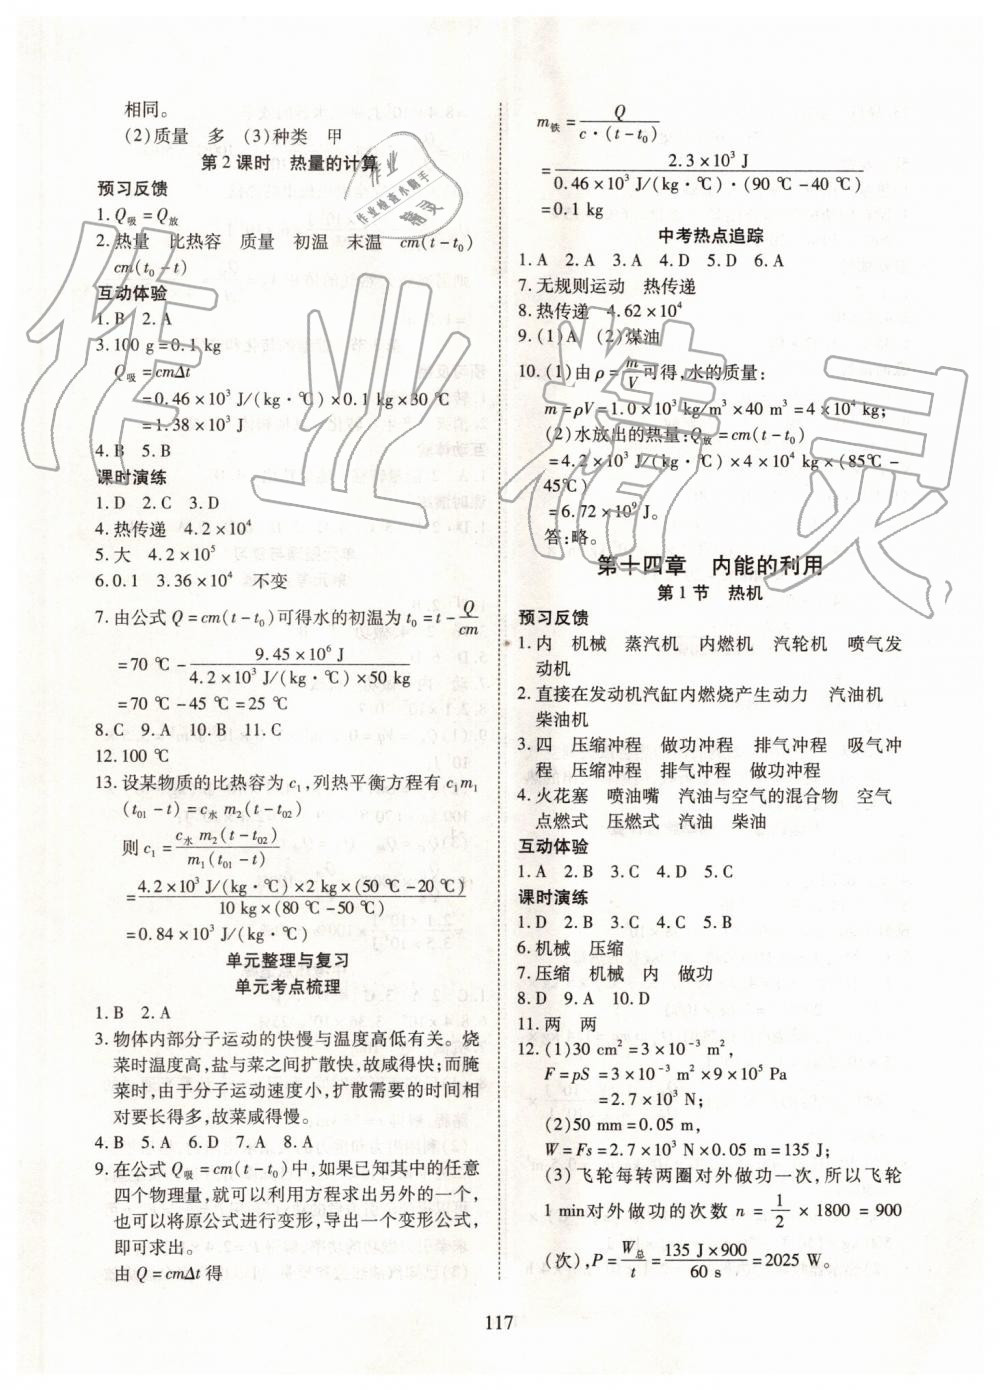 相同。
(2)质量 多 (3)种类 甲
第2课时 热量的计算
预习反馈
1. Q吸 = Q放
2. 热量 比热容 质量 初温 末温 cm(t-t₀)
cm(t₀-t)
互动体验
1. B 2. A
3. 100 g=0.1 kg
Q吸 = cmΔt
=0.46×10³ J/(kg·℃)×0.1 kg×30 ℃
=1.38×10³ J
4. B 5. B
课时演练
1. D 2. C 3. D
4. 热传递 4.2×10⁴
5. 大 4.2×10⁵
6. 0.1 3.36×10⁴ 不变
7. 由公式 Q=cm(t-t₀)可得水的初温为 t₀=t-Q/cm
=70 ℃-9.45×10⁶ J/4.2×10³ J/(kg·℃)×50 kg
=70 ℃-45 ℃=25 ℃
8. C 9. A 10. B 11. C
12. 100 ℃
13. 设某物质的比热容为 c₁,列热平衡方程有 c₁m₁
(t₀₁-t)=c水 m₂(t-t₀₂)
则 c₁=c水 m₂(t-t₀₂)/m₁(t₀₁-t)
=4.2×10³ J/(kg·℃)×2 kg×(50 ℃-20 ℃)/10 kg×(80 ℃-50 ℃)
=0.84×10³ J/(kg·℃)
单元整理与复习
单元考点梳理
1. B 2. A
3. 物体内部分子运动的快慢与温度高低有关。烧
菜时温度高,盐与菜之间扩散快,故咸得快;而腌
菜时,由于分子运动速度小,扩散需要的时间相
对要长得多,故菜咸得慢。
4. B 5. A 6. D 7. A 8. A
9. 在公式 Q吸=cm(t-t₀)中,如果已知其中的任意
四个物理量,就可以利用方程求出另外的一个,
也可以将原公式进行变形,导出一个变形公式,
即可求出。
由 Q=cmΔt 得
m铁=Q/c·(t-t₀)
=2.3×10³ J/0.46×10³ J/(kg·℃)·(90 ℃-40 ℃)
=0.1 kg
中考热点追踪
1. A 2. A 3. A 4. D 5. D 6. A
7. 无规则运动 热传递
8. 热传递 4.62×10⁴
9. (1)A (2)煤油
10. (1)由 ρ=m/V可得,水的质量:
m=ρV=1.0×10³ kg/m³×40 m³=4×10⁴ kg;
(2)水放出的热量:Q放=cm(t-t₀)
=4.2×10³ J/(kg·℃)×4×10⁴ kg×(85℃-
45℃)
=6.72×10⁹ J。
答:略。
第十四章 内能的利用
第1节 热机
预习反馈
1. 内 机械 蒸汽机 内燃机 汽轮机 喷气发
动机
2. 直接在发动机汽缸内燃烧产生动力 汽油机
柴油机
3. 四 压缩冲程 做功冲程 排气冲程 吸气冲
程 压缩冲程 排气冲程 做功冲程
4. 火花塞 喷油嘴 汽油与空气的混合物 空气
点燃式 压燃式 汽油 柴油
互动体验
1. A 2. B 3. C 4. D 5. C
课时演练
1. D 2. B 3. C 4. C 5. B
6. 机械 压缩
7. 压缩 机械 内 做功
8. D 9. A 10. D
11. 两 两
12. (1)30 cm²=3×10⁻³ m²,
F=pS=3×10⁻³ m²×9×10⁵ Pa
=2.7×10³ N;
(2)50 mm=0.05 m,
W=Fs=2.7×10³ N×0.05 m=135 J;
(3)飞轮每转两圈对外做功一次,所以飞轮
1 min对外做功的次数 n=1/2×1800=900
(次),P=W总/t=135 J×900/60 s=2025 W。
117
作业
作业检查小助手
精灵
作业精灵